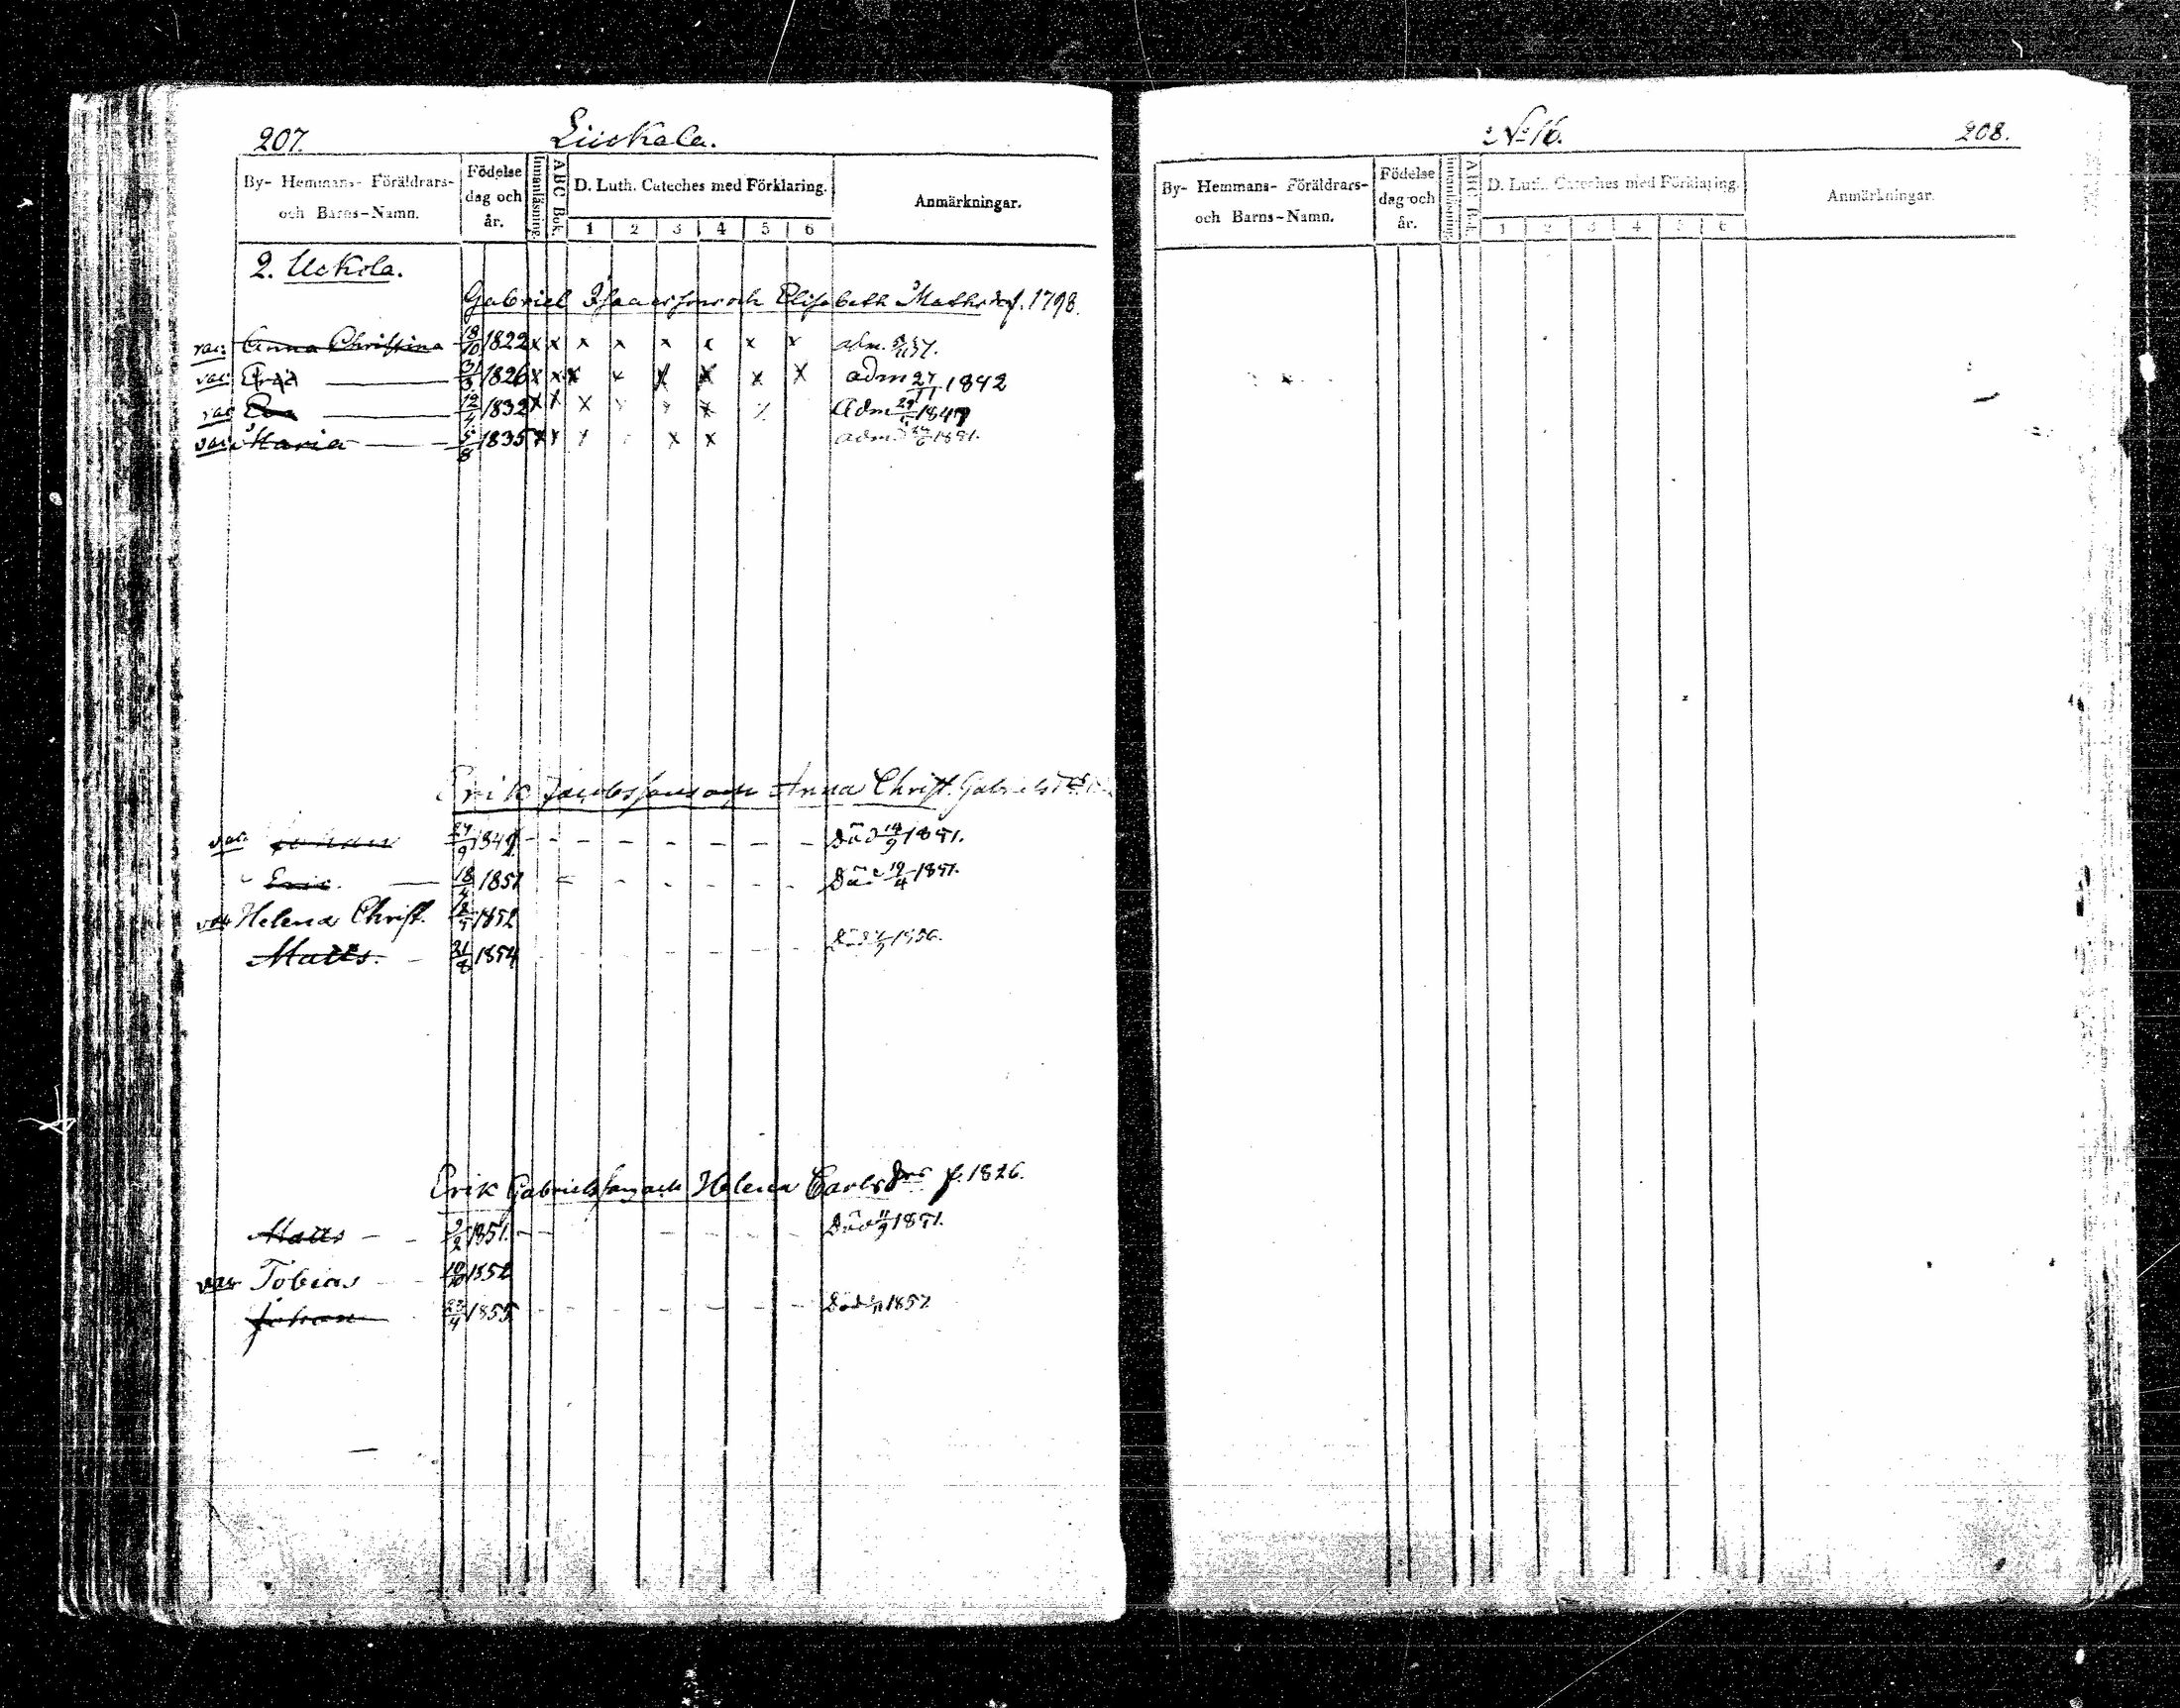 207. Liiskala.
By- Hemmans- Föräldrars- och Barns-Namn. Födelse dag och år. Innanläsning. ABC Bok. D. Luth. Cateches med Förklaring. 1 2 3 4 5 6 Anmärkningar.
2. Uckola.
Gabriel Isaacsson och Elisabeth Mathsd. f. 1798.
vac: Anna Christina 18/10 1822 x x x x x x x x adm.
vac: Eric 31/3 1826 x x x x x x x x adm 27/11 1842
vac Eva 12/4 1832 x x x x x x x Adm 1847
vac: Maria 5/8 1835 x x x x x adm 1851.
Erik Jacobsson och Anna Christ. Gabrielsd:r
vac. Johan 27/9 1849 – – – – – – – Död 14/9 1851.
Eric. 18/4 1851 – – – – – – Död 19/4 1851.
vac Helena Christ. 1852
Matts. 31/8 1854 – – – – – – Död 1856.
Erik Gabrielsson och Helena Carlsdr f. 1826.
Matts 2/2 1851. – – – – – – Död 11/9 1851.
vac Tobias 10/10 1852
Johan 23/4 1855 – – – – – – Död 1857
No 16. 208.
By- Hemmans- Föräldrars- och Barns-Namn. Födelse dag och år. Innanläsning. ABC Bok. D. Luth. Cateches med Förklaring. 1 2 3 4 5 6 Anmärkningar.